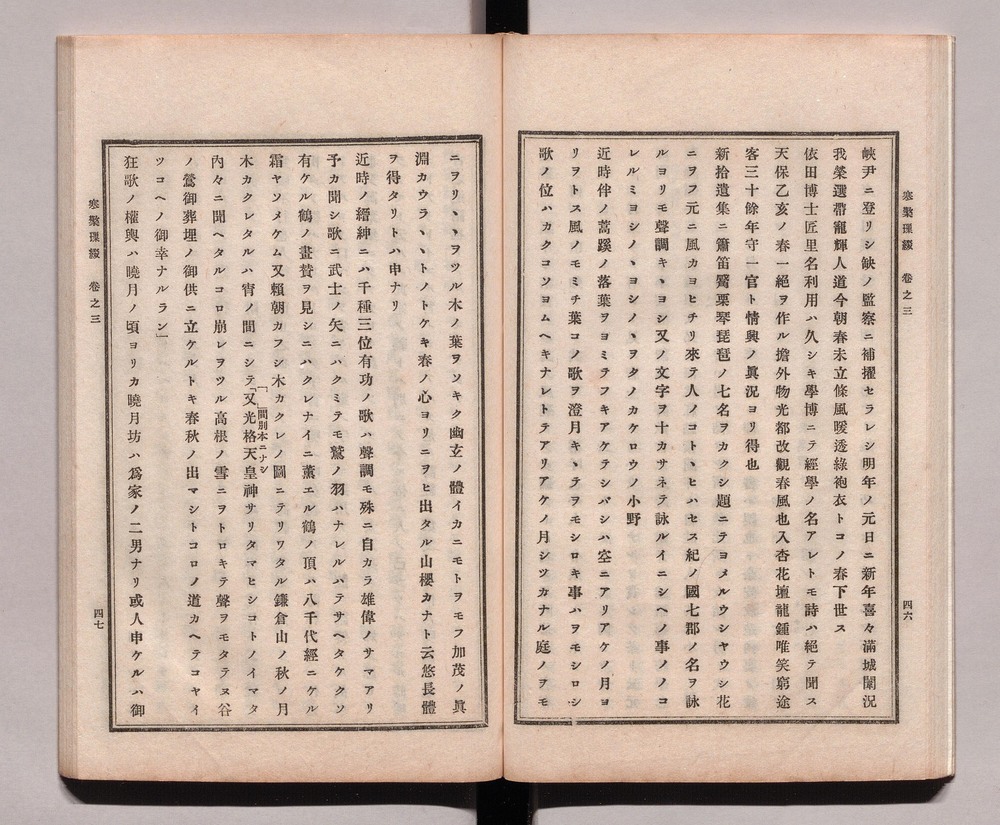 寒檠璅綴 卷之三
四六
峽尹ニ登リシ缺ノ監察ニ補擢セラレシ明年ノ元日ニ新年喜々滿城闉況
我榮選帶寵輝人道今朝春未立條風暖透綠袍衣トコノ春下世ス
依田博士匠里名利用ハ久シキ學博ニテ經學ノ名アレトモ詩ハ絕テ聞ス
天保乙亥ノ春一絕ヲ作ル擔外物光都改觀春風也入杏花壇龍鍾唯笑窮途
客三十餘年守一官ト情興ノ眞況ヨリ得也
新拾遺集ニ簫笛篳栗琴琵琶ノ七名ヲカクシ題ニテヨメルウシヤウシ花
ニヲフ元ニ風カヨヒチリ來テ人ノコトヽヒハセス紀ノ國七郡ノ名ヲ詠
ルヨリモ聲調キヽヨシ又ノ文字ヲ十カサネテ詠ルイニシヘノ事ノノコ
レルミヨシノヽヨシノヽヲタノカケロウノ小野
近時伴ノ蒿蹊ノ落葉ヲヨミテフキアケテシバシハ空ニアリアケノ月ヨ
リヲトス風ノモミチ葉コノ歌ヲ澄月キヽテヲモシロキ事ハヲモシロシ
歌ノ位ハカクコソヨムヘキナレトテアリアケノ月シツカナル庭ノヲモ
ニヲリヽヽヲツル木ノ葉ヲソキク幽玄ノ體イカニモトヲモフ加茂ノ眞
淵カウラヽヽトノトケキ春ノ心ヨリニヲヒ出タル山櫻カナト云悠長體
ヲ得タリトハ申ナリ
近時ノ縉紳ニハ千種三位有功ノ歌ハ聲調モ殊ニ自カラ雄偉ノサマアリ
予カ聞シ歌ニ武士ノ矢ニハクミテモ鷲ノ羽ハナレルハテサヘタケクソ
有ケル鶴ノ畫賛ヲ見シニハクレナイニ薰エル鶴ノ頂ハ八千代經ニケル
霜ヤソメケム又賴朝カフシ木カクレノ圖ニテリワタル鎌倉山ノ秋ノ月
木カクレタルハ宵ノ間ニシテ「又光格天皇神サリタマヒシコトノイマタ
「」間別本ニナシ
內々ニ聞ヘタルコロ崩レヲツル高根ノ雪ニヲトロキテ聲ヲモタテヌ谷
ノ鶯御葬埋ノ御供ニ立ケルトキ春秋ノ出マシトコロノ道カヘテコヤイ
ツコヘノ御幸ナルラン」
狂歌ノ權輿ハ曉月ノ頃ヨリカ曉月坊ハ爲家ノ二男ナリ或人申ケルハ御
寒檠璅綴 卷之三
四七